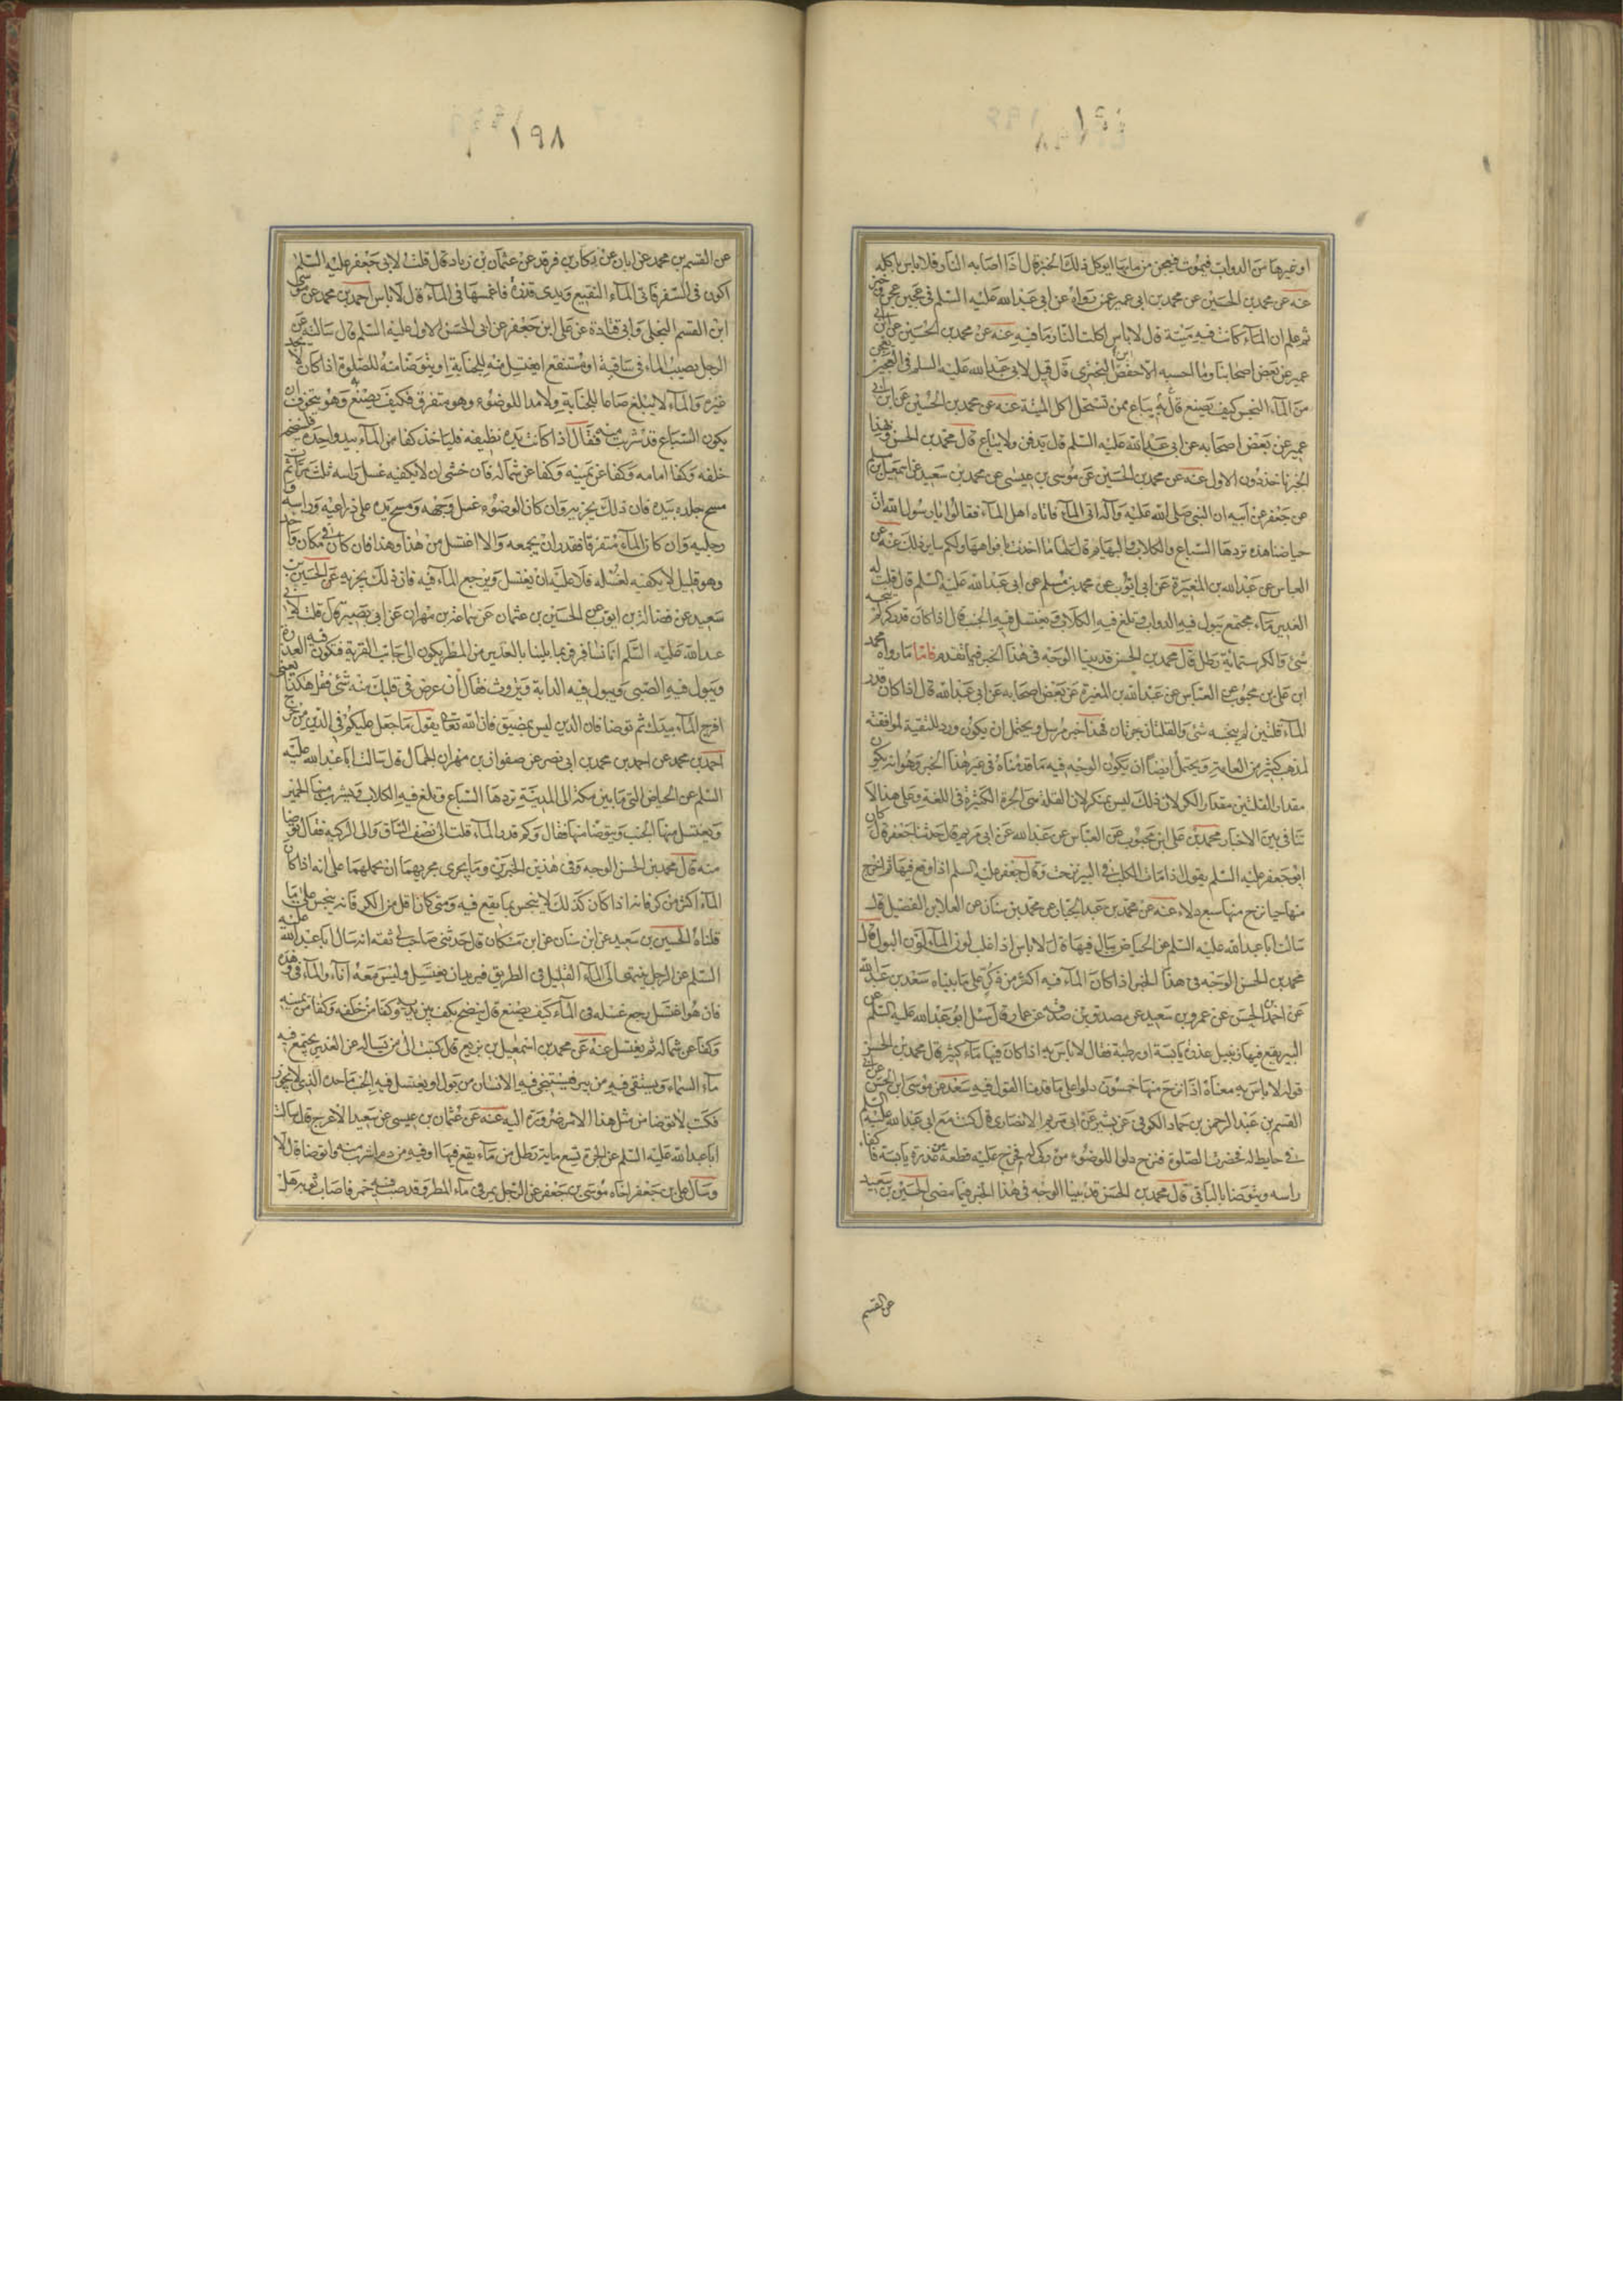 او غيرها من الدواب فيموت فيعجن من مائها ايوكل ذلك الخبز قال اذا اصابه النار فلا باس باكله
عنه عن محمد بن الحسين عن محمد بن ابى عمير عمن رواه عن ابى عبد الله عليه السلم فى عجين عجن وخبز
ثم علم ان الماء كانت فيه ميتة قال لا باس اكلت النار ما فيه عنه عن محمد بن الحسين عن ابن ابى
عمير عن بعض اصحابنا وما احسبه الا حفص بن البخترى قال قيل لابى عبد الله عليه السلم فى العجين يعجن
من الماء النجس كيف يصنع به قال يباع ممن تستحل اكل الميتة عنه عن محمد بن الحسين عن ابن ابى
عمير عن بعض اصحابه عن ابى عبد الله عليه السلم قال يدفن ولا يباع قال محمد بن الحسن وبهذا
الخبر ناخذ دون الاول عنه عن محمد بن الحسين عن موسى بن عيسى عن محمد بن سعيد عن اسمعيل بن مسلم
عن جعفر عن ابيه ان النبى صلى الله عليه وآله اتى الماء فاتاه اهل الماء فقالوا يا رسول الله ان
حياضنا هذه تردها السباع والكلاب والبهايم قال لها ما اخذت بافواهها ولكم ساير ذلك عنه عن
العباس عن عبد الله بن المغيرة عن ابى ايوب عن محمد بن مسلم عن ابى عبد الله عليه السلم قال قلت له
الغدير ماء مجتمع تبول فيه الدواب وتلغ فيه الكلاب ويغتسل فيه الجنب قال اذا كان قدر كر لم ينجسه
شئ والكر ستماية رطل قال محمد بن الحسن قد بينا الوجه فى هذا الخبر فيما تقدم فاما ما رواه محمد
ابن على بن محبوب عن العباس عن عبد الله بن المغيرة عن بعض اصحابه عن ابى عبد الله قال اذا كان قدر
الماء قلتين لم ينجسه شئ والقلتان جرتان فهذا خبر مرسل ويحتمل ان يكون ورد للتقية لموافقته
لمذهب كثير من العامة ويحتمل ايضا ان يكون الوجه فيه ما قدمناه فى غير هذا الخبر وهو انه يكون
مقدار القلتين مقدار الكر لان ذلك ليس بمنكر لان القلة هى الجرة الكبيرة فى اللغة وعلى هذا لا
تنافى بين الاخبار محمد بن على ابن محبوب عن العباس عن عبد الله عن ابى مريم قال حدثنا جعفر قال كان
ابو جعفر عليه السلم يقول اذا مات الكلب فى البير نزحت وقال جعفر عليه السلم اذا وقع فيها ثم اخرج
منها حيا نزح منها سبع دلاء عنه عن محمد بن عبد الجبار عن محمد بن سنان عن العلا بن الفضيل قال
سالت ابا عبد الله عليه السلم عن الحياض يبال فيها قال لا باس اذا غلب لون الماء لون البول قال
محمد بن الحسن الوجه فى هذا الخبر اذا كان الماء فيه اكثر من كر على ما بيناه سعد بن عبد الله
عن احمد بن الحسن عن عمرو بن سعيد عن مصدق بن صدقه عن عمار قال سئل ابو عبد الله عليه السلم عن
البير يقع فيها زنبيل عذرة يابسة او رطبة فقال لا باس به اذا كان فيها ماء كثير قال محمد بن الحسن
قوله لا باس به معناه اذا نزح منها خمسون دلوا على ما قدمنا القول فيه سعد عن موسى ابن الحسن عن ابى
القسم بن عبد الرحمن بن حماد الكوفى عن بشير عن ابى مريم الانصارى قال كنت مع ابى عبد الله عليه السلم
فى حايط له فحضرت الصلوة فنزح دلوا للوضوء من ركى له فخرج عليه قطعة من عذرة يابسة فاكفاء
راسه وتوضا بالباقى قال محمد بن الحسن قد بينا الوجه فى هذا الخبر فيما مضى الحسين بن سعيد
عن القسم
١٩٨
عن القسم بن محمد عن ابان عن زكار بن فرقد عن عثمان بن زياد قال قلت لابى جعفر عليه السلم
اكون فى السفر فاتى الماء النقيع ويدى قذرة فاغمسها فى الماء قال لا باس احمد بن محمد عن موسى
ابن القسم البجلى وابى قتادة عن على ابن جعفر عن ابى الحسن الاول عليه السلم قال سالته عن
الرجل يصيب الماء فى ساقية او مستنقع ايغتسل منه للجنابة او يتوضا منه للصلوة اذا كان لا يجد
غيره والماء لا يبلغ صاعا للجنابة ولا مدا للوضوء وهو متفرق فكيف يصنع به وهو يتخوف ان
يكون السباع قد شربت منه فقال اذا كانت يده نظيفه فلياخذ كفا من الماء بيد واحدة فلينضحه
خلفه وكفا امامه وكفا عن يمينه وكفا عن شماله فان خشى ان لا يكفيه غسل راسه ثلث مرات ثم
مسح جلده بيده فان ذلك يجزيه وان كان الوضوء غسل وجهه ومسح يده على ذراعيه وراسه و
رجليه وان كان الماء متفرقا فقدر ان يجمعه والا اغتسل من هذا وهذا فان كان فى مكان واحد
وهو قليل لا يكفيه لغسله فلا عليه ان يغتسل ويرجع الماء فيه فان ذلك يجزيه عن الحسين بن
سعيد عن فضالة بن ايوب عن الحسين بن عثمان عن سماعة بن مهران عن ابى بصير قال قلت لابى
عبد الله عليه السلم انا نسافر فربما بلينا بالغدير من المطر يكون الى جانب القرية فيكون فيه العذرة
ويبول فيه الصبى ويبول فيه الدابة وتروث فقال ان عرض فى قلبك منه شئ فقل هكذا يعنى
افرج الماء بيدك ثم توضا فان الدين ليس بمضيق فان الله تعالى يقول ما جعل عليكم فى الدين من حرج
احمد بن محمد عن احمد بن محمد بن ابى نصر عن صفوان بن مهران الجمال قال سالت ابا عبد الله عليه
السلم عن الحياض التى ما بين مكة الى المدينة تردها السباع وتلغ فيه الكلاب ويشرب منها الحمير
ويغتسل منها الجنب ويتوضا منها فقال وكم قدر الماء قلت الى نصف الساق والى الركبة فقال توضا
منه قال محمد بن الحسن الوجه فى هذين الخبرين وما يجرى مجريهما ان نحملهما على انه اذا كان
الماء اكثر من كر فانه اذا كان كذلك لا ينجس بما يقع فيه ومتى كان اقل من الكر فانه ينجس على ما
قلناه الحسين بن سعيد عن ابن سنان عن ابن مسكان قال حدثنى صاحب لى ثقة انه سال ابا عبد الله عليه
السلم عن الرجل ينتهى الى الماء القليل فى الطريق فيريد ان يغتسل وليس معه اناء والماء فى وهدة
فان هو اغتسل رجع غسله فى الماء كيف يصنع قال ينضح بكف بين يديه وكفا من خلفه وكفا من يمينه
وكفا عن شماله ثم يغتسل عنه عن محمد بن اسمعيل بن بزيع قال كتبت الى من يساله عن الغدير يجتمع فيه
ماء السماء ويستقى فيه من بير فيستنجى فيه الانسان من بول او يغتسل فيه الجنب ما حده الذى لا يجوز
فكتب لا توضا من مثل هذا الا من ضرورة اليه عنه عن عثمان بن عيسى عن سعيد الاعرج قال سالت
ابا عبد الله عليه السلم عن الجرة تسع ماية رطل من ماء يقع فيها اوقيه من دم اشرب منه واتوضا قال لا
وسال على بن جعفر اخاه موسى بن جعفر عن الرجل يمر فى ماء المطر وقد صب فيه خمر فاصاب ثوبه هل